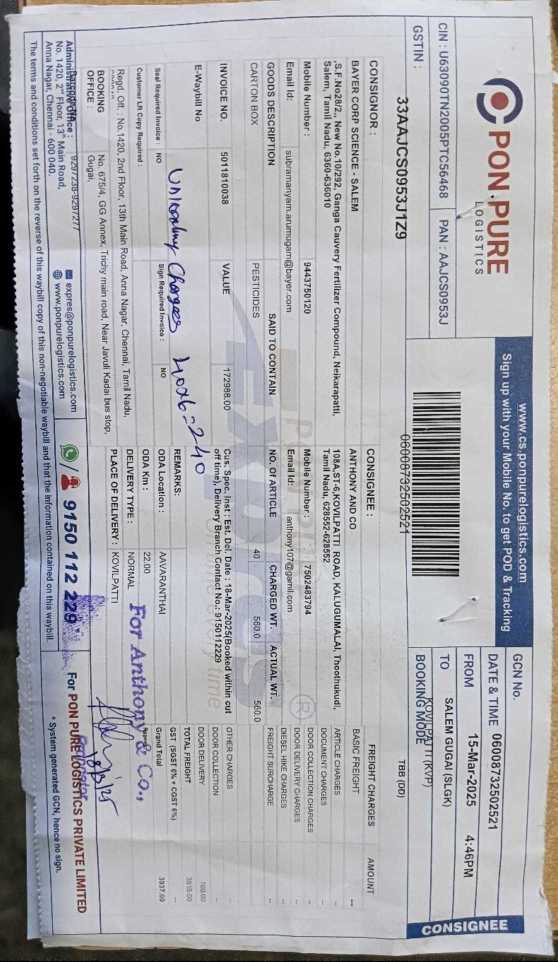 PON PURE
LOGISTICS
www.cs.ponpurelogistics.com
Sign up with your Mobile No. to get POD & Tracking
CIN : U63090TN2005PTC56468 PAN : AAJCS0953J
GSTIN : 33AAJCS0953J1Z9
06008732502521
GCN No.
DATE & TIME 06008732502521
15-Mar-2025 4:46PM
FROM SALEM GUGAI (SLGK)
TO KOVILPATTI (KVP)
BOOKING MODE TBB (DD)
CONSIGNEE
CONSIGNOR :
BAYER CORP SCIENCE - SALEM
,S.F.No28/2, New No.10/292, Ganga Cauvery Fertilizer Compound, Neikarapatti,
Salem, Tamil Nadu, 6360-636010
Mobile Number : 9443750120
Email Id: subramanyam.arumugam@bayer.com
CONSIGNEE :
ANTHONY AND CO
108A,ST-6,KOVILPATTI ROAD, KALUGUMALAI, Thoothukudi,
Tamil Nadu, 628552-628552
Mobile Number : 7502483794
Email Id: anthony107@gamil.com
GOODS DESCRIPTION SAID TO CONTAIN NO. OF ARTICLE CHARGED WT. ACTUAL WT.
CARTON BOX PESTICIDES 40 560.0 560.0
INVOICE NO. 5011810038 VALUE 172988.00
E-Waybill No
Cus. Spec. Inst : Est. Del. Date : 18-Mar-2025(Booked within cut
off time), Delivery Branch Contact No.: 9150112229
REMARKS:
Unloading Charges 40x6=240
Seal Required Invoice : NO Sign Required Invoice : NO
Customer LR Copy Required :
ODA Location : AAVARANTHAI
ODA Km : 22.00
DELIVERY TYPE : NORMAL
PLACE OF DELIVERY : KOVILPATTI
FREIGHT CHARGES AMOUNT
BASIC FREIGHT --
ARTICLE CHARGES --
DOCUMENT CHARGES --
DOOR COLLECTION CHARGES --
DOOR DELIVERY CHARGES --
DIESEL HIKE CHARGES --
FREIGHT SURCHARGE --
OTHER CHARGES
DOOR COLLECTION
DOOR DELIVERY 100.00
TOTAL FREIGHT
GST
Grand Total
Regd. Off. : No.1420, 2nd Floor, 13th Main Road, Anna Nagar, Chennai, Tamil Nadu,
BOOKING OFFICE : No. 675/4, GG Annex, Trichy main road, Near Javuli Kadai bus stop,
Gugai,
For Anthony & Co.,
No. 1420, 2nd Floor, 13th Main Road,
Anna Nagar, Chennai - 600 040.
expres@ponpurelogistics.com
www.ponpurelogistics.com
9150 112 229
For PON PURE LOGISTICS PRIVATE LIMITED
The terms and conditions set forth on the reverse of this waybill copy of this non-negotiable waybill and that the information contained on this waybill.
* System generated GCN, hence no sign.